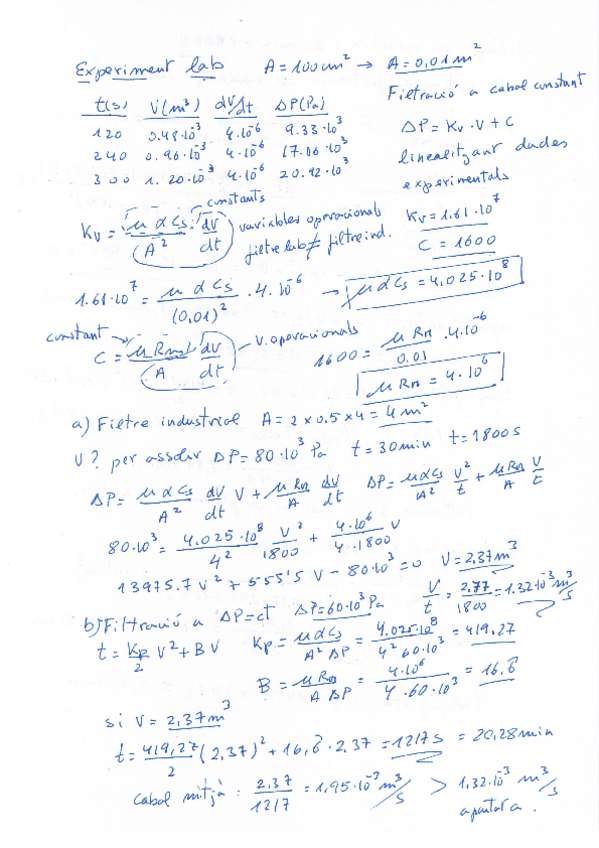 Experiment lab A = 100 cm² → A = 0,01 m²
Filtració a cabal constant
t(s) V(m³) dV/dt ΔP(Pa)
120 0.48·10⁻³ 4·10⁻⁶ 9.33·10³
240 0.96·10⁻³ 4·10⁻⁶ 17.06·10³
300 1.20·10⁻³ 4·10⁻⁶ 20.92·10³
ΔP = Kv·V + C
linealitzant dades
experimentals
Kv = 1.61·10⁷
C = 1600
constants
Kv = μ α Cs / A² · dV/dt
variables operacionals
filtre lab ≠ filtre ind.
1.61·10⁷ = μ α Cs / (0,01)² · 4·10⁻⁶ → μ α Cs = 4,025·10⁸
constant
C = μ Rm / A · dV/dt
V. operacionals
1600 = μ Rm / 0.01 · 4·10⁻⁶
μ Rm = 4·10⁶
a) Filtre industrial A = 2 x 0.5 x 4 = 4 m²
V? per assolir ΔP = 80·10³ Pa t = 30 min t = 1800 s
ΔP = μ α Cs / A² dV/dt V + μ Rm / A dV/dt ΔP = μ α Cs / A² V²/t + μ Rm / A V/t
80·10³ = 4,025·10⁸ / 4² V² / 1800 + 4·10⁶ / 4·1800 V
13975.7 V² + 555'5 V - 80·10³ = 0 V = 2,37 m³
V/t = 2,77 / 1800 = 1.32·10⁻³ m³/s
b) Filtració a ΔP = ct ΔP = 60·10³ Pa
t = Kp/2 V² + B V Kp = μ α Cs / A² ΔP = 4.025·10⁸ / 4² 60·10³ = 419,27
B = μ Rm / A ΔP = 4·10⁶ / 4·60·10³ = 16,6̂
si V = 2,37 m³
t = 419,27 / 2 (2,37)² + 16,6̂ · 2,37 = 1217 s = 20,28 min
cabal mitjà : 2,37 / 1217 = 1,95·10⁻³ m³/s > 1,32·10⁻³ m³/s
apartat a.